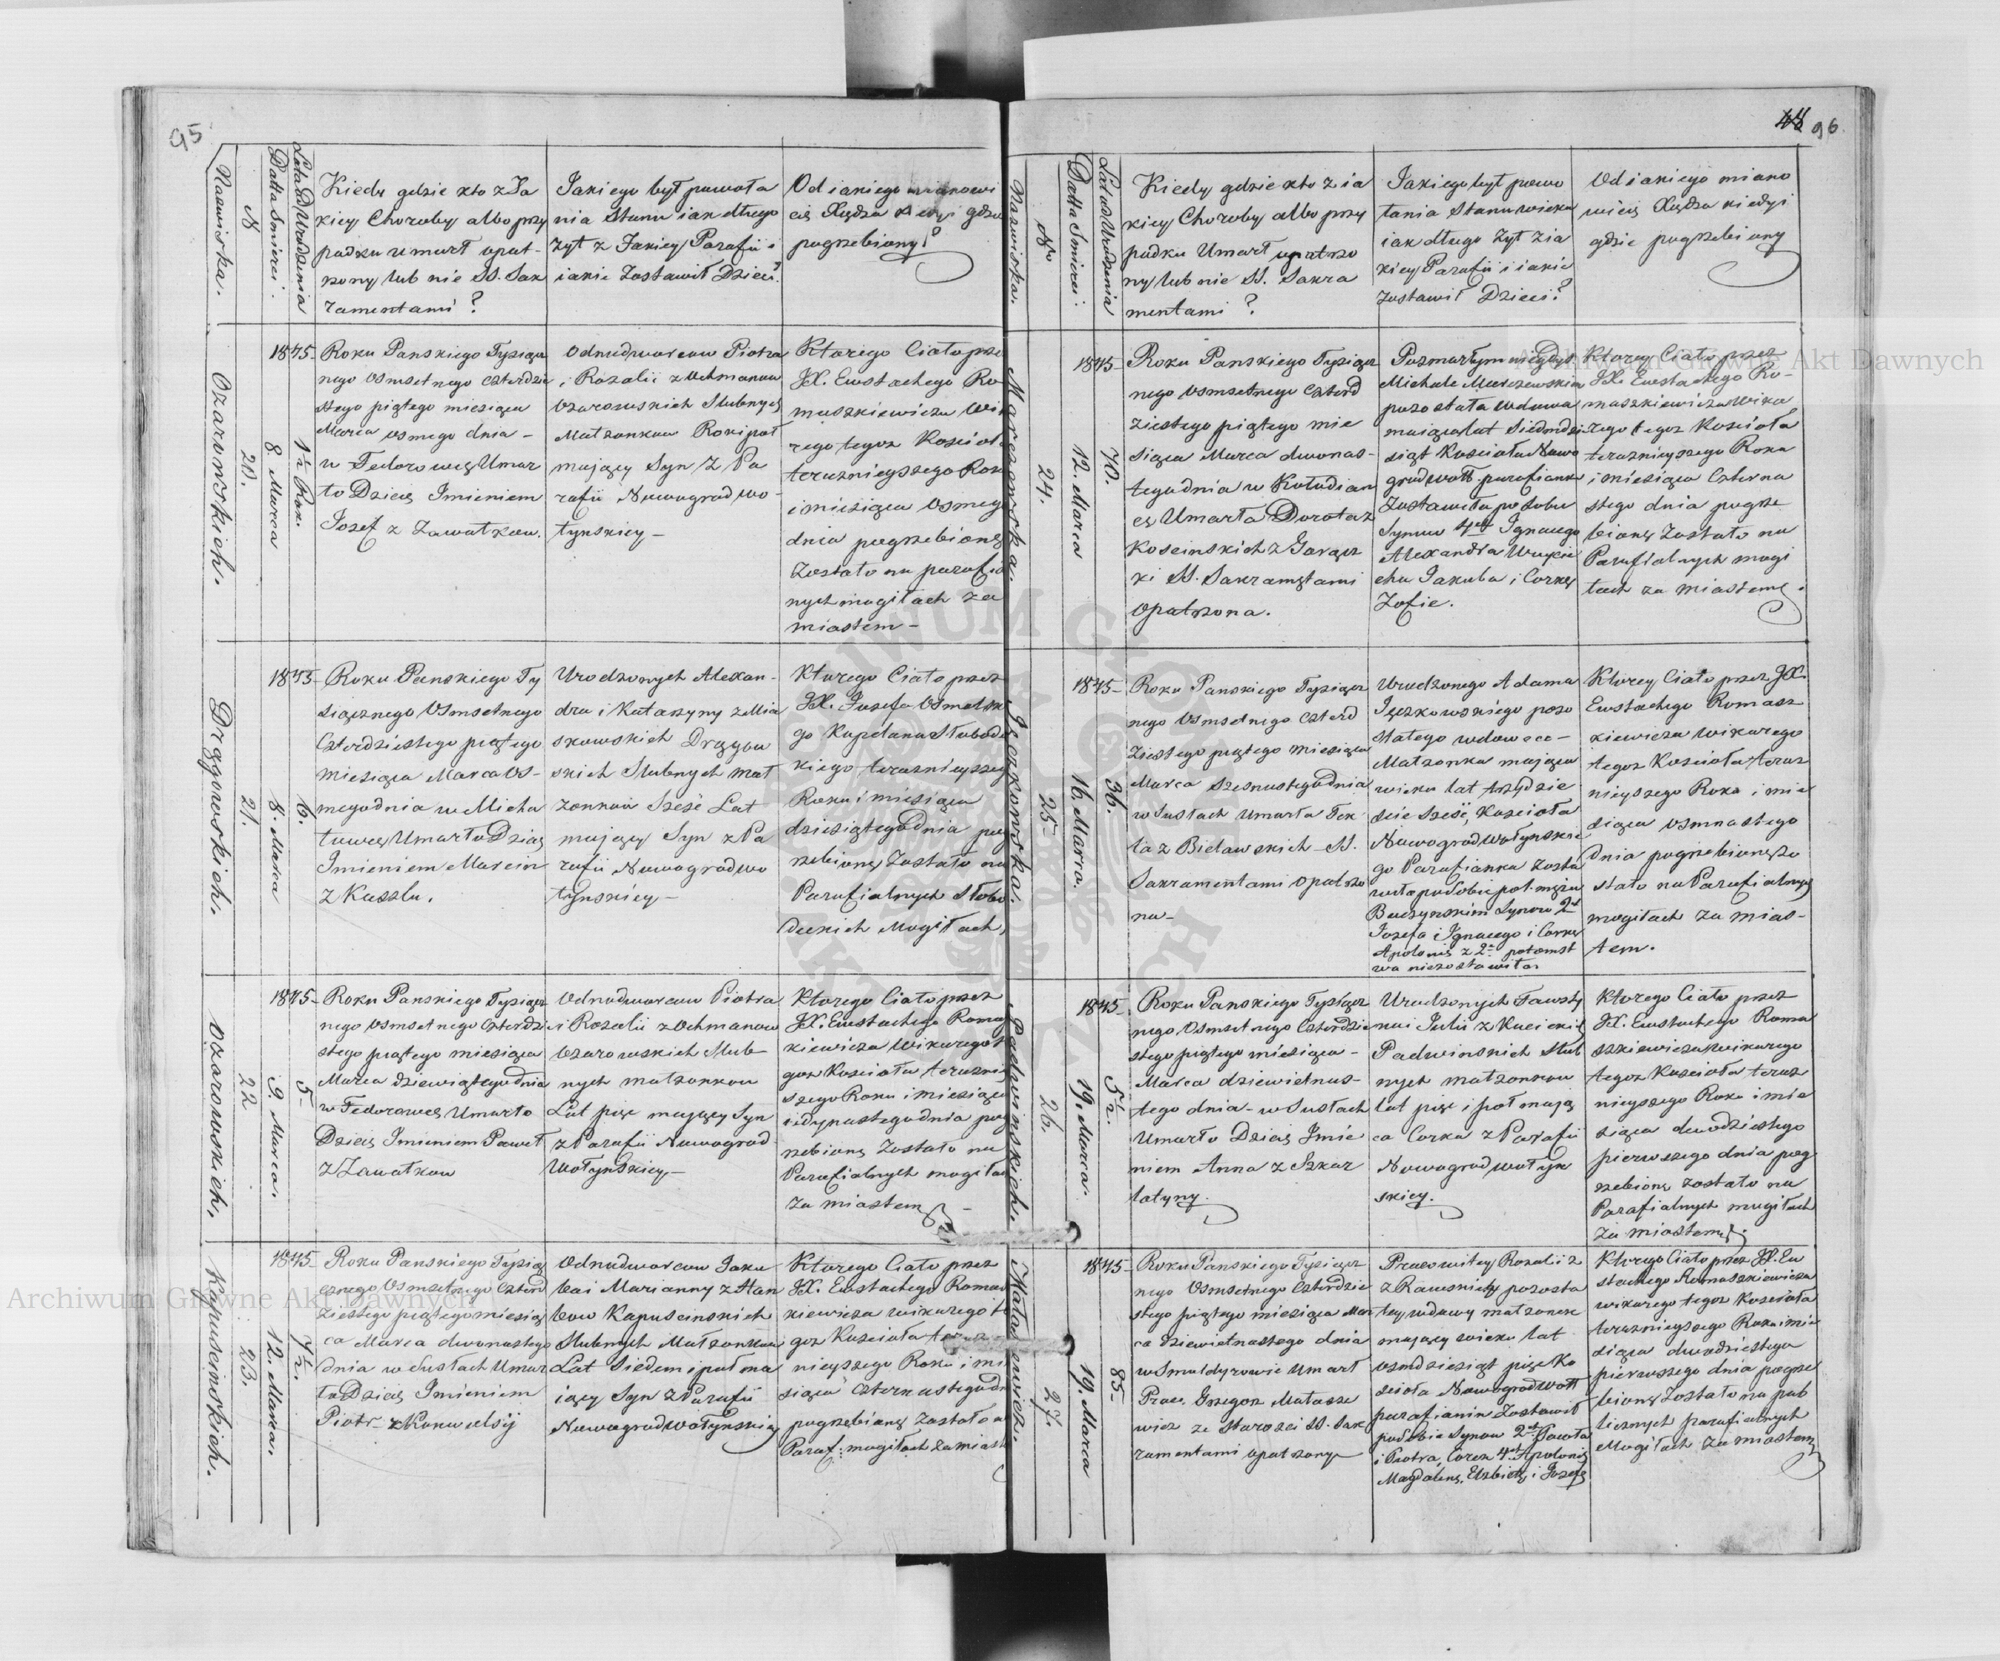 95
Nazwiska.
N
Datta Smierci.
Lata Od Urodzenia
Kiedy gdzie kto z Ja
kiey Choroby albo przy
padku umarł opat-
rzony lub nie SS. Sak
ramentami?
Jakiego był powoła
nia Stanu iak długo
żył z Jakiey Parafii i
iakie zostawił Dzieci?
Od iakiego mianowi
cie Xiędza kiedy i gdzie
pogrzebiony?
Ozarowskich.
20.
1845-
8 Marca
1½ Rok.
Roku Panskiego Tysiącz
nego Osmsetnego czterdzie
stego piątego miesiąca
Marca osmego dnia -
w Fedorowce Umar
ło Dziecię Imieniem
Jozef z Zawałkow.
Odnodworcow Piotra
i Rozalii z Ochmanow
Ozarowskich Slubnych
Małzonkow Rok i poł
maiący Syn z Pa
rafii Nowogradwo-
łynskiey -
Ktorego Ciało prze
JX. Eustachego Ro
maszkiewicza Wik
rego tegoz Kościoła
terazniejszego Roku
i miesiąca Osmego
dnia pogrzebione
zostało na parafia
nych mogiłach za
miastem -
Drągowskich.
21.
1845-
8. Marca
6.
Roku Panskiego Ty
siącznego Osmsetnego
Czterdziestego piątego
miesiąca Marca Os-
mego dnia w Micha
łowce Umarło Dziecię
Imieniem Marcin
z Kaszlu.
Urodzonych Alexan-
dra i Katarzyny z Mia
skowskich Drągow
skich Slubnych mał
zonkow Sześć Lat
maiący Syn z Pa
rafii Nowogradwo
łynskiey -
Ktorego Ciało przez
JX. Jozefa Osmolsk
go Kapelana Słobode
kiego terazniejszego
Roku i miesiąca
dziesiątego dnia pog
rzebione zostało na
Parafialnych Słobo
deckich Mogiłach,
Ozarowskich,
22
1845-
9 Marca.
5-
Roku Panskiego Tysiącz
nego Osmsetnego Czterdzi
stego piątego miesiąca
Marca dziewiątego dnia
w Fedorowce Umarło
Dziecię Imieniem Paweł
z Zawałkow
Odnodworcow Piotra
i Rozalii z Ochmanow
Ozarowskich Slub-
nych małzonkow
Lat pięc maiący Syn
z Parafii Nowograd-
wołynskiey -
Ktorego Ciało przez
JX. Eustachego Romas
kiewicza Wikarego t
goz Kościoła terazni
szego Roku i miesiąca
iedynastego dnia pog
rzebione zostało na
Parafialnych mogiłach
za miastem -
Kapuscinskich.
23.
1845-
12. Marca.
7½.
Roku Panskiego Tysiąc
cznego Osmsetnego Czterd
ziestego piątego miesią
ca Marca dwonastego
dnia w Susłach Umar
ło Dziecię Imieniem
Piotr z Konwulsij
Odnodworcow Jaku
ba i Marianny z Han
bow Kapuscinskich
Slubnych Małzonkow
Lat Siedem i poł ma
iący Syn z Parafii
Nowogradwołynskiey
Ktorego Ciało przez
JX. Eustachego Romas
kiewicza wikarego te
goz Kościoła teraz
nieyszego Roku i mie
siąca Czternastego dn
pogrzebione zostało n
Paraf: mogiłach za miast
48 96
Nazwiska.
No
Datta Smierci.
Lat od Urodzenia
Kiedy gdzie kto z ia
kiey Choroby albo przy
padku Umarł opatrzo
ny lub nie SS. Sakra
mentami?
Jakiego był powo
łania Stanu wieku
iak długo żył z ia
kiey Parafii i iakie
zostawił Dzieci?
Od iakiego miano
wicie Xiędza kiedy i
gdzie pogrzebiony
Marczewska.
24.
1845-
12. Marca
70.
Roku Panskiego Tysiącz
nego Osmsetnego Czterd
ziestego piątego mie
siąca Marca dwonas-
tego dnia w Kołodian
ce Umarła Dorota z
Koscinskich z Gorącz
ki SS. Sakramętami
Opatrzona.
Po zmarłym niegdys
Michale Marczewskim
pozostała wdowa
maiąca lat Siedmdzie
siąt Kościoła Nowo
gradwoł. parafianka
zostawiła po sobie
Synow 4ch Ignacego
Alexandra Woycie
cha Jakuba i Corkę
Zofie.
Ktorey Ciało przez
JX. Eustachego Ro-
maszkiewicza Wika
rego tegoz Kościoła
terazniejszego Roku
i miesiąca Czterna
stego dnia pogrze
bione zostało na
Parafialnych mogi
łach za miastem.
Jęczkowska.
25-
1845-
16. Marca.
36.
Roku Panskiego Tysiącz
nego Osmsetnego Czterd
ziestego piątego miesiąca
Marca szesnastego dnia
w Susłach Umarła Tek
la z Bielawskich - SS.
Sakramentami Opatrzo
na -
Urodzonego Adama
Jęczkowskiego pozo
stałego wdowca -
Małzonka maiąca
wieku lat trzydzie
ście Sześć, Kościoła
Nowogradwołynskie
go Parafianka zosta
wiła po sobie po 1. mężu
Buczynskim Synow 2ch
Jozefa i Ignacego i Corkę
Apolonię z 2m potomst
wa niezostawiła.
Ktorey Ciało przez JX.
Eustachego Romasz
kiewicza wikarego
tegoz Kościoła teraz
nieyszego Roku i mie
siąca osmnastego
dnia pogrzebione zo
stało na Parafialnych
mogiłach za mias-
tem.
Padwinskich.
26.
1845.
19. Marca.
5½.
Roku Panskiego Tysiącz
nego Osmsetnego Czterdzie
stego piątego miesiąca -
Marca dziewietnas-
tego dnia - w Susłach
Umarło Dziecię Imie
niem Anna z Szkar
latyny.
Urodzonych Fausty
na i Julii z Kucickich
Padwinskich Slub
nych małzonkow
lat pięc i poł maią
ca Corka z Parafii
Nowogradwołyn
skiey.
Ktorego Ciało przez
JX. Eustachego Roma
szkiewicza wikarego
tegoz Kościoła teraz
nieyszego Roku i mie
siąca dwodziestego
pierwszego dnia pog
rzebione zostało na
Parafialnych mogiłach
za miastem.
Matasewicz.
27.
1845-
19. Marca
85-
Roku Panskiego Tysiącz
nego Osmsetnego Czterdzie
stego piątego miesiąca Mar
ca dziewietnastego dnia
w Smołdyrowie Umarł
Prac. Grzegorz Matasze
wicz ze Starości SS. Sak
ramentami Opatrzony
Pracowitey Rozalii z
Rawuskich pozosta
łey wdowy małzonek
maiący wieku lat
osmdziesiąt pięc Ko
scioła Nowogradwoł
parafianin zostawił
po sobie Synow 2ch Pawła
i Piotra, Corek 4ch Apolonię
Magdalenę, Elzbietę i Jozefę
Ktorego Ciało przez JX. Eu
stachego Romaszkiewicza
wikarego tegoz Kościoła
terazniejszego Roku i mie
siąca dwudziestego
pierwszego dnia pogrze
bione zostało na pub
licznych parafialnych
Mogiłach za miastem
Archiwum Główne Akt Dawnych
Archiwum Główne Akt Dawnych